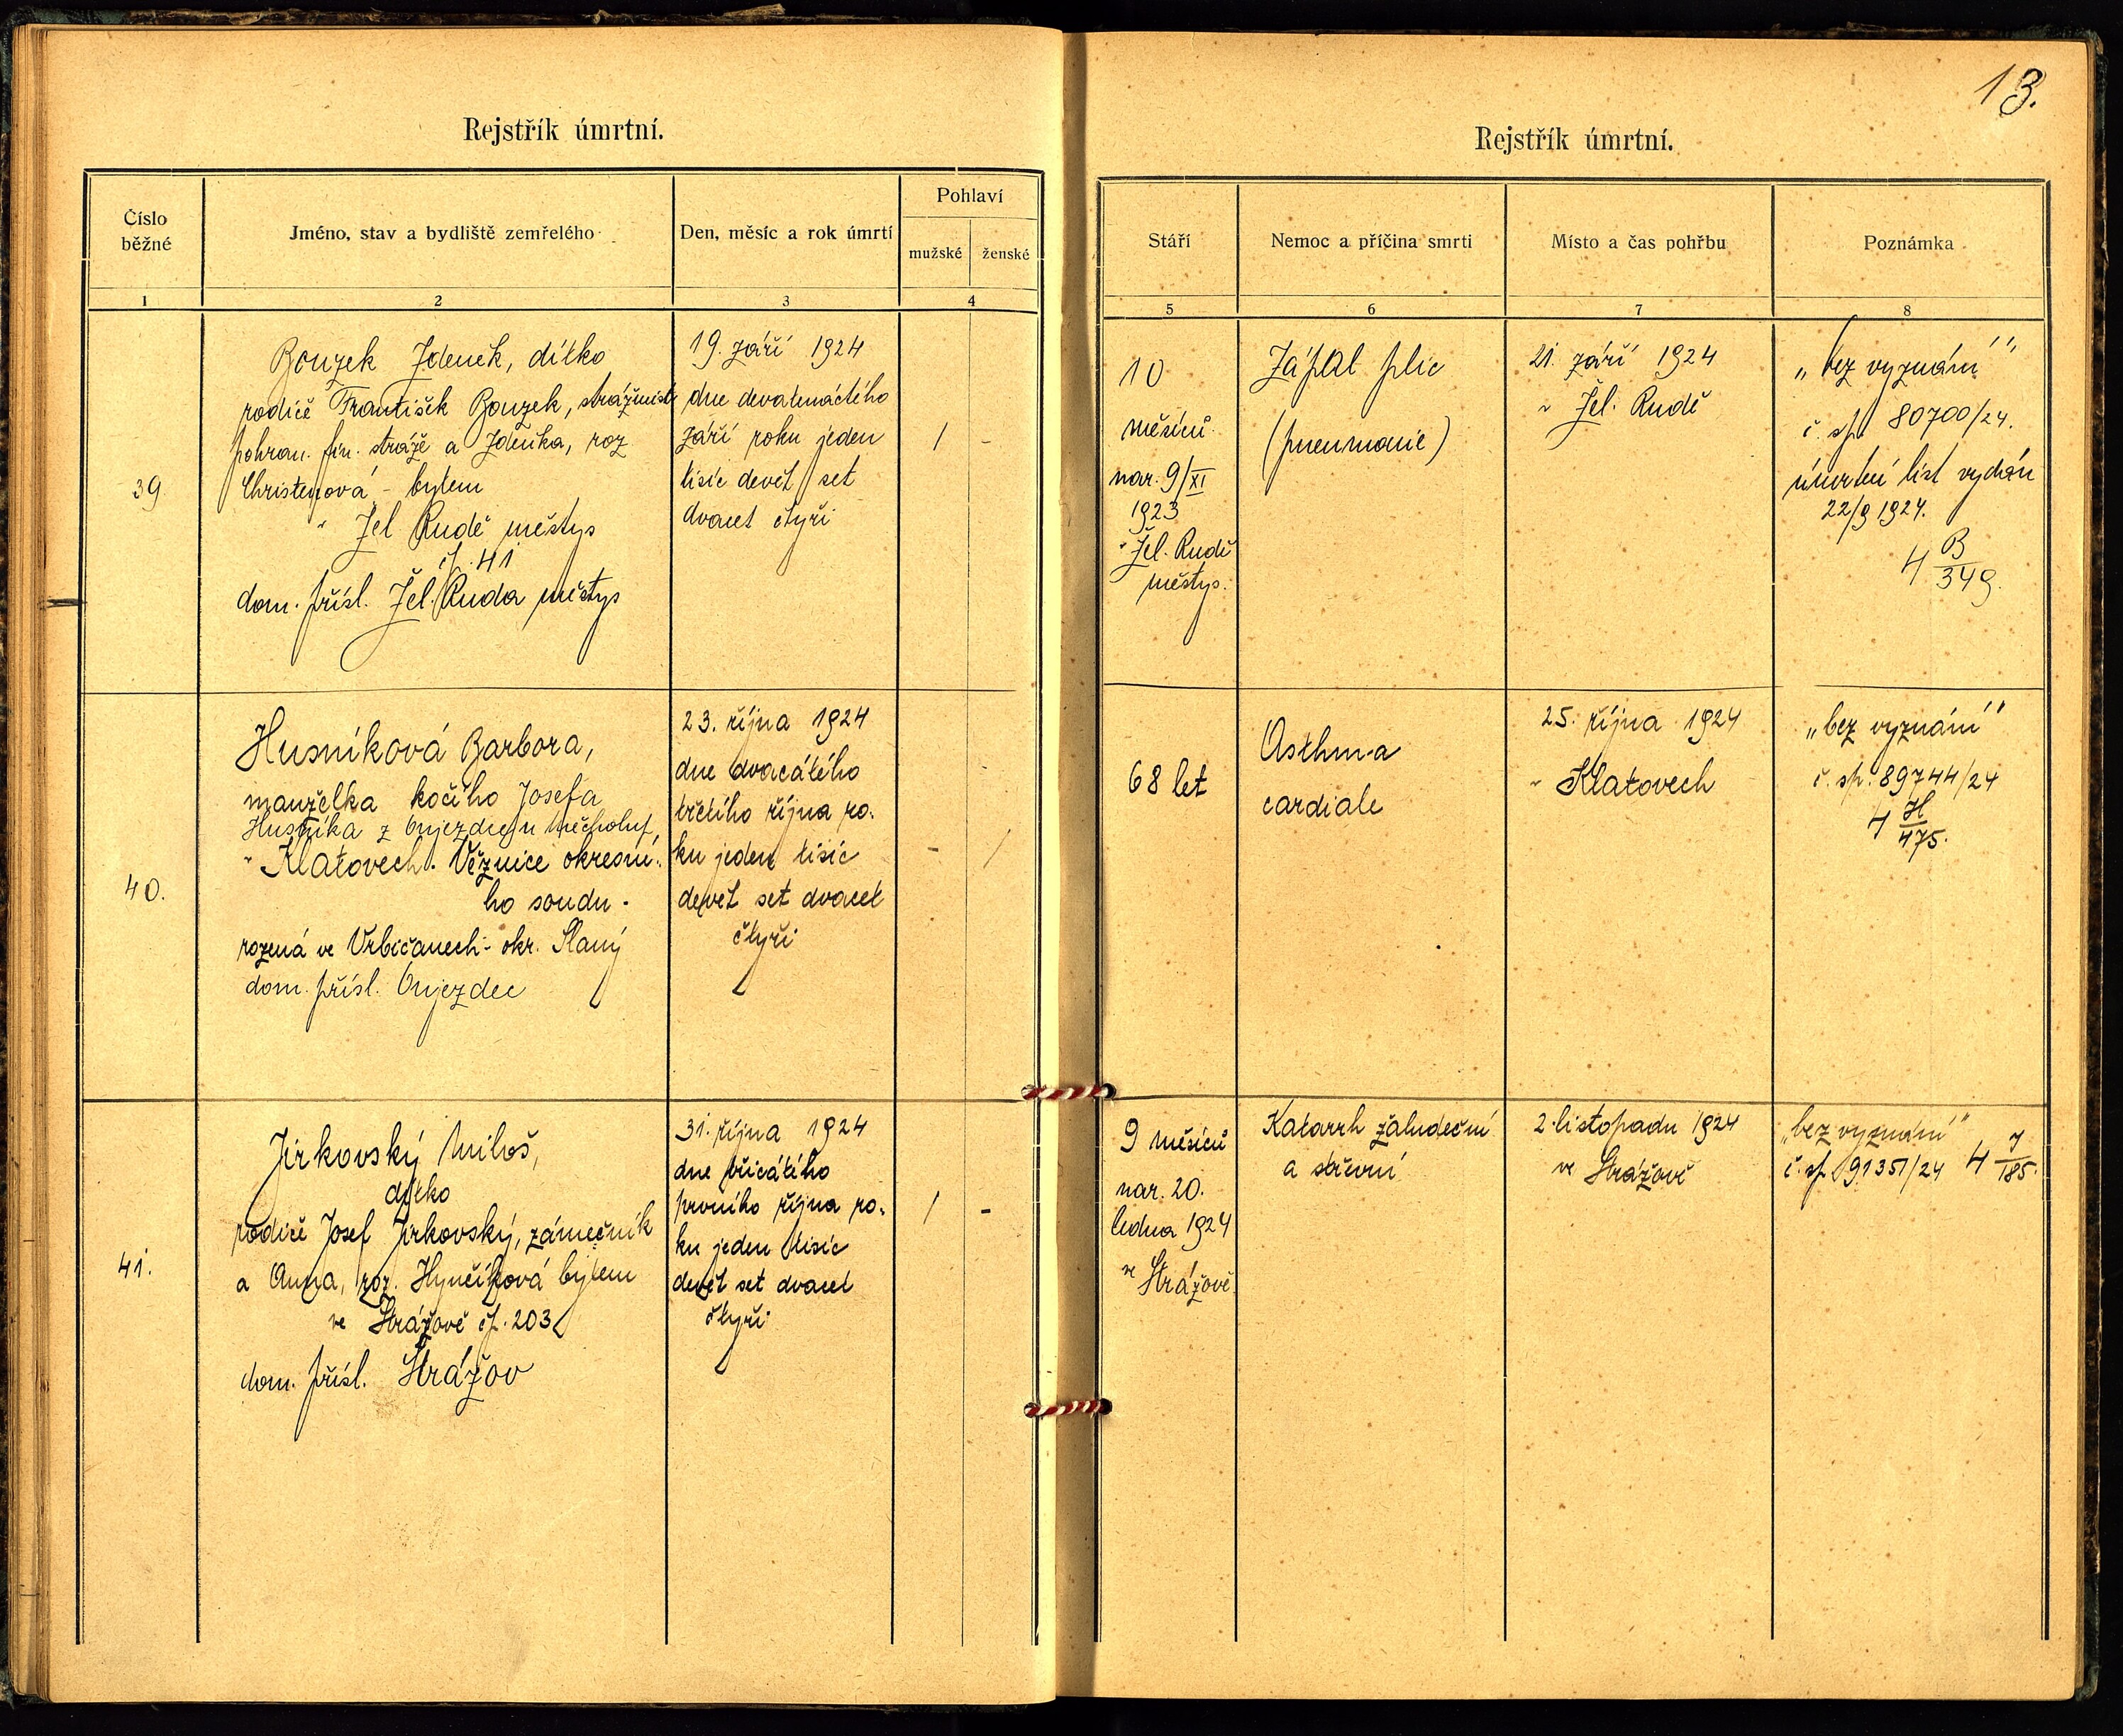 13.
Rejstřík úmrtní.
Číslo běžné
Jméno, stav a bydliště zemřelého
Den, měsíc a rok úmrtí
Pohlaví
mužské
ženské
1
2
3
4
39
Bouzek Zdeněk, dítko
rodiče František Bouzek, strážmistr
pohran. fin. stráže a Zdeňka, roz
bytem
v Žel Rudě městys
čp. 41
dom. přísl. Žel. Ruda městys
19. září 1924
dne devatenáctého
září roku jeden
tisíc devět set
dvacet čtyři
1
-
40.
Husníková Barbora,
manželka kočího Josefa
Husníka z Onjezdce u Měcholup,
v Klatovech. Věznice okresní-
ho soudu.
rozená ve Vrbičanech - okr. Slaný
dom. přísl. Onjezdec
23. října 1924
dne dvacátého
třetího října ro-
ku jeden tisíc
devět set dvacet
čtyři
-
/
41.
Jirkovský Miloš,
dítko
rodiče Josef Jirkovský, zámečník
a Anna, roz. Hynčíková bytem
ve Strážově čp. 203
dom. přísl. Strážov
31. října 1924
dne třicátého
prvního října ro-
ku jeden tisíc
devět set dvacet
čtyři
/
-
Rejstřík úmrtní.
Stáří
Nemoc a příčina smrti
Místo a čas pohřbu
Poznámka
5
6
7
8
10
měsíců
nar. 9/XI
1923
v Žel. Rudě
městys.
Zápal plic
(pneumonie)
21. září 1924
v Žel. Rudě
„bez vyznání"
č. sp. 80700/24.
úmrtní list vydán
22/9 1924.
4 B/349.
68 let
Asthma
cardiale
25. října 1924
v Klatovech
„bez vyznání"
č. sp. 89744/24
4 H/475.
9 měsíců
nar. 20.
ledna 1924
ve Strážově
Katarrh žaludeční
a střevní
2. listopadu 1924
ve Strážově
„bez vyznání"
č. sp. 91351/24 4 J/185.